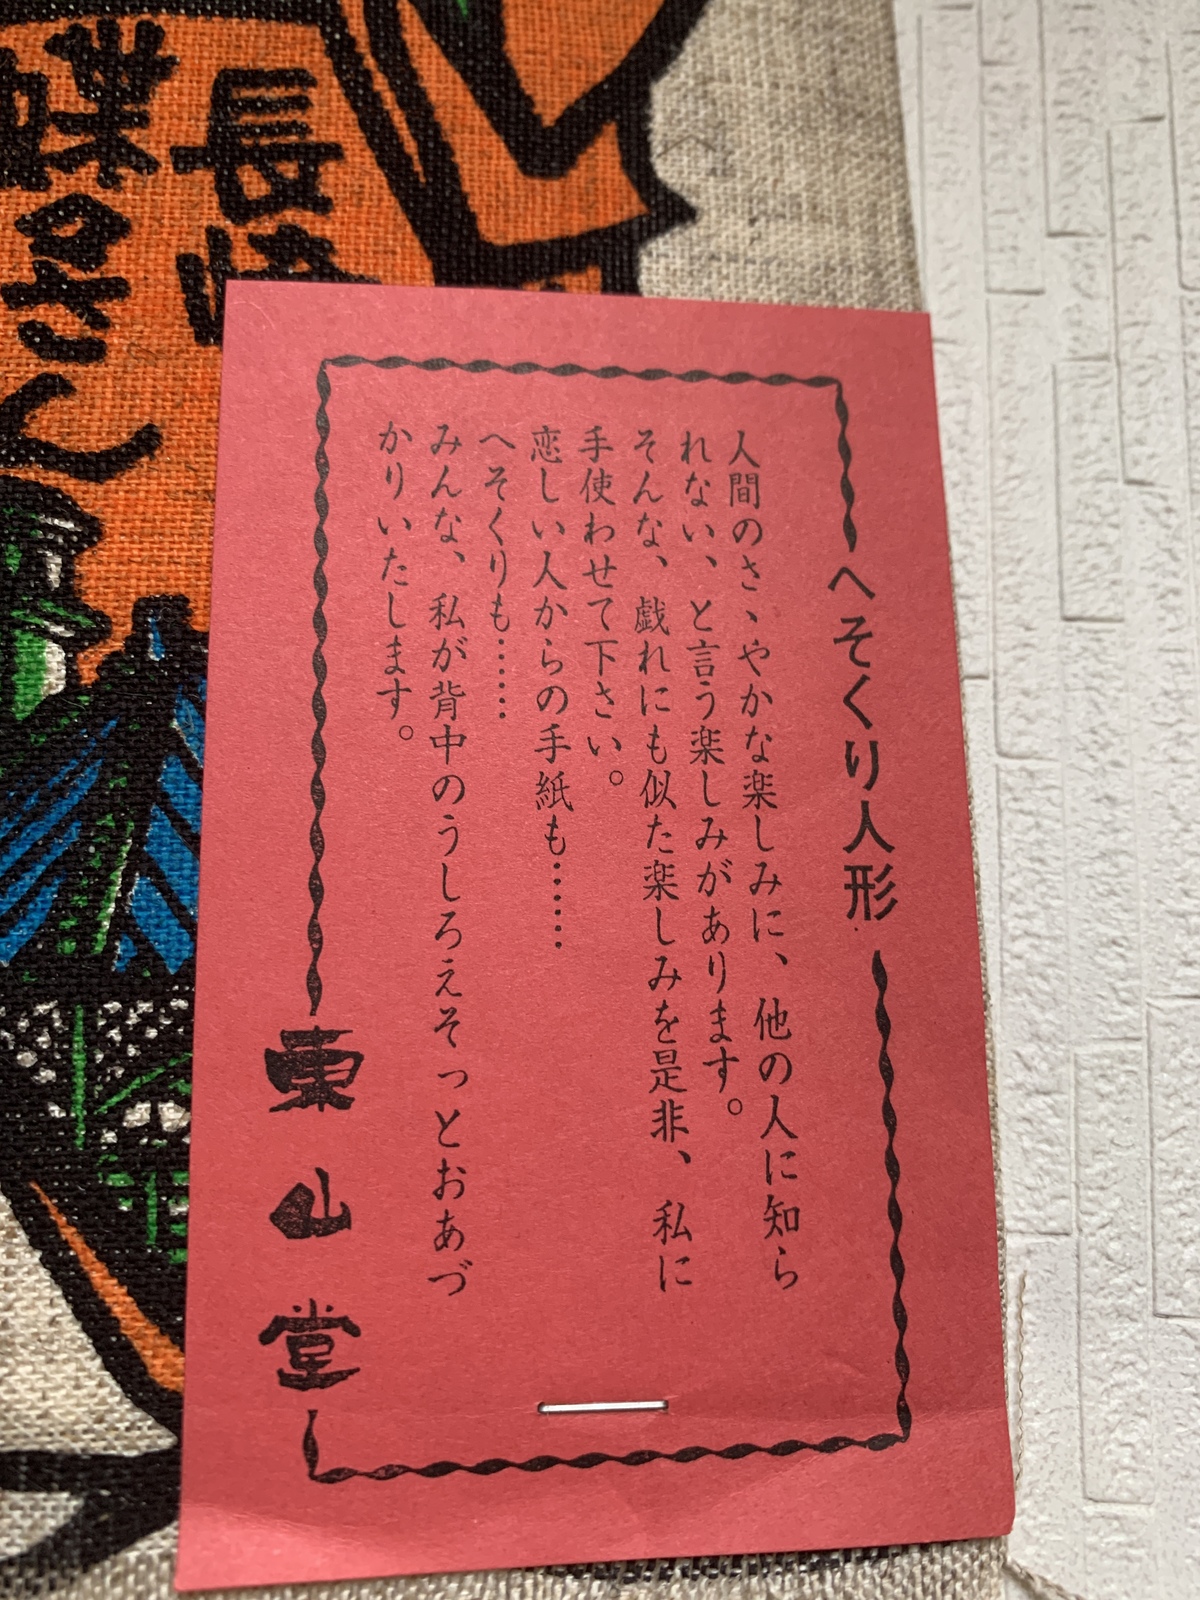 へそくり人形
人間のさゝやかな楽しみに、他の人に知ら
れない、と言う楽しみがあります。
そんな、戯れにも似た楽しみを是非、私に
手使わせて下さい。
恋しい人からの手紙も……
へそくりも……
みんな、私が背中のうしろえそっとおあづ
かりいたします。
東山堂
長
蝶々さん